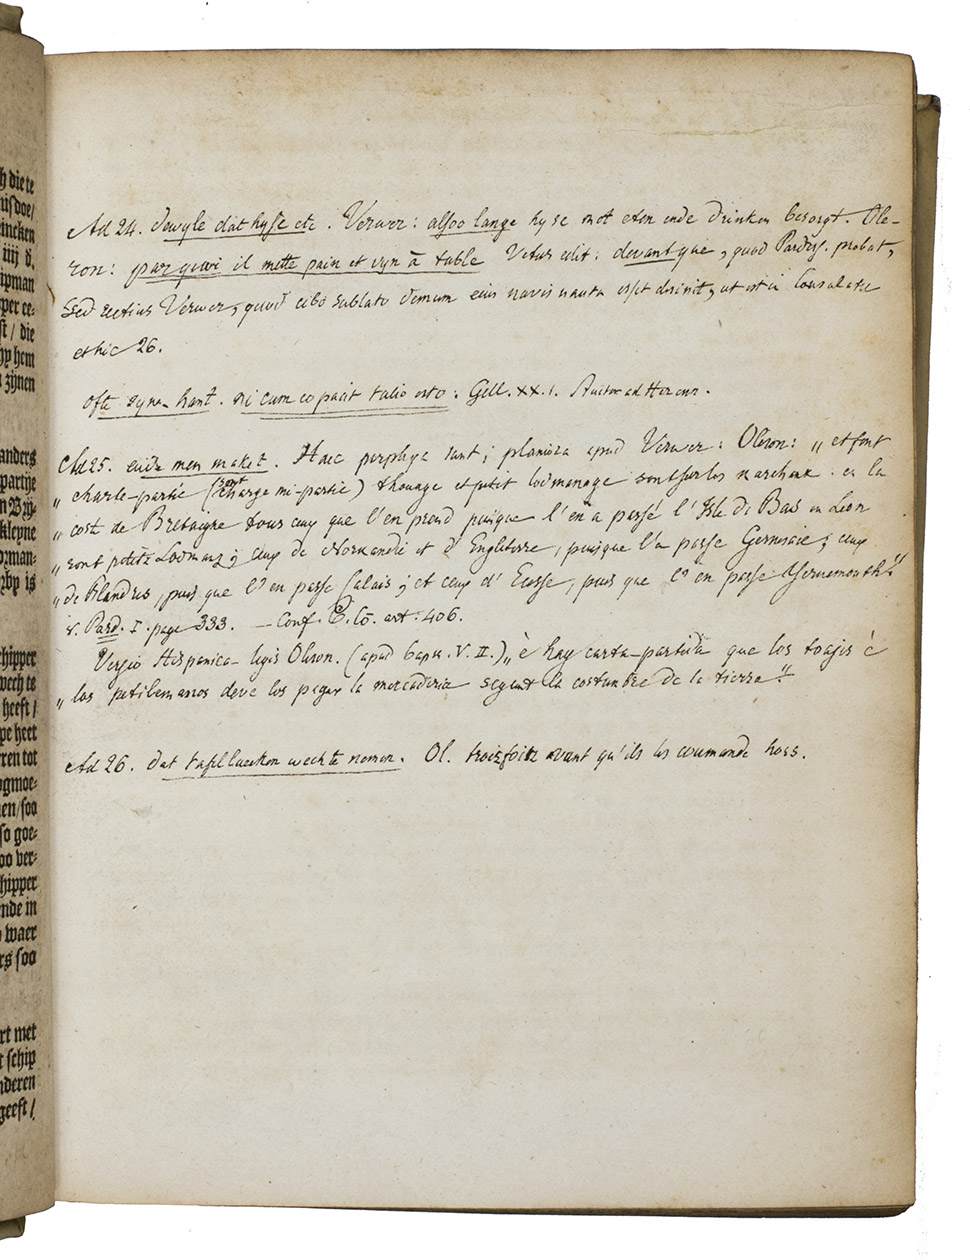 h die te
misdoe/
iiij d.
ipman
pper ee-
st / die
yp hem
zijnen
anders
partije
n Bij-
kleyne
odman-
rby is
chipper
wech te
heeft /
pe heet
ren tot
ogmoe-
en/soo
so goe-
oo ver-
hipper
nde in
waer
rs soo
rt met
t schip
nderen
geest /
Ad 24. dewyle dat hyse etc. Verwer: alsoo lange hy se met eten ende drinken besorgt. Ole-
ron: par quoi il mette pain et vyn à table Vetus edit: devant que, quod Pardess. probat,
Sed rectius Verwer, quod cibo sublato demum eius navis nauta esse desinit, ut est in Consulatu
et hic 26.
ofte syne hant. ni cum eo pacit talio esto: Gell. XX.1. Auctor ad Herenn.
Ad 25. ende men maket. Haec perplexa sunt; planiora apud Verwer: Oleron: „ et font
„ charte-partie (sont charge mi-partie) thouage et petit lodmanage sont sur les marchans. en la
„ coste de Bretagne tous ceux que l'en prend puisque l'en a passé l'Isle de Bas en Leon
„ sont petitz Lodmans; ceux de Normandie et d'Engleterre, puisque l'a passe Gernesaie; ceux
„ de Flandres, puis que l'en passe Calais; et ceux d'Ecosse, puis que l'en passe Gernemouth."
v. Pard. I. page 333. — Conf. C. Co. art. 406.
Versio Hispanica legis Oleron. (apud Capm. V. II.) „ è hay carta-partida que los toajes è
„ los petilemanos deve los pagar la mercaderia segunt la costumbre de la tierra."
Ad 26. dat tafellaecken wech te nemen. Ol. troiz foitz avant qu'ils les coumande hors.